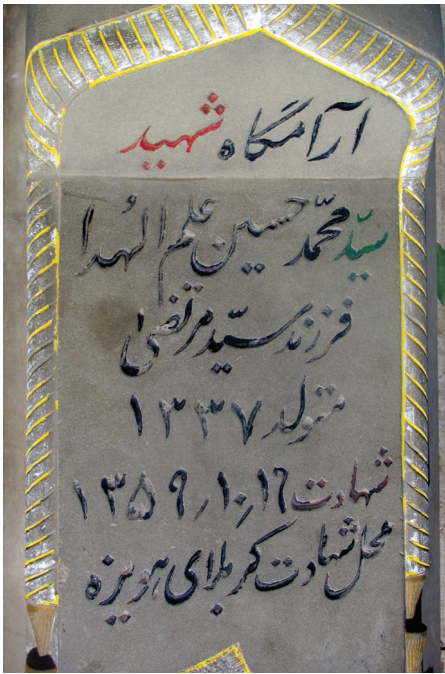 آرامگاه شهید
سیّد محمّد حسین علم الهُدا
فرزند سیّد مرتضیٰ
متولد ۱۳۳۷
شهادت ۱۳۵۹٫۱۰٫۱۶
محل شهادت کربلای هویزه